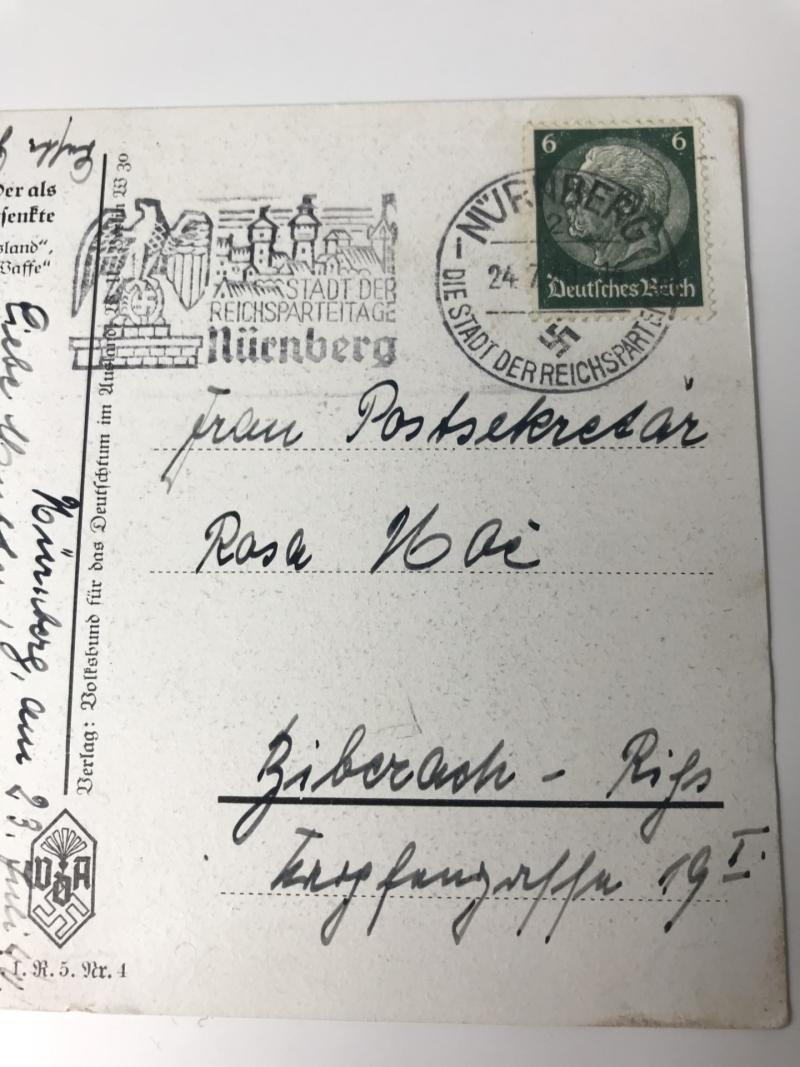 6 6
Deutsches Reich
NÜRNBERG
2
24.7.
DIE STADT DER REICHSPARTE
STADT DER
REICHSPARTEITAGE
Nürnberg
Frau Postsekretär
Rosa
Biberach - Riß
19 I.
Verlag: Volksbund für das Deutschtum im Ausland W 30
VDA
I. R. 5. Nr. 4
der als
senkte
sland",
Waffe"
Nürnberg, am 23. Juli
Liebe